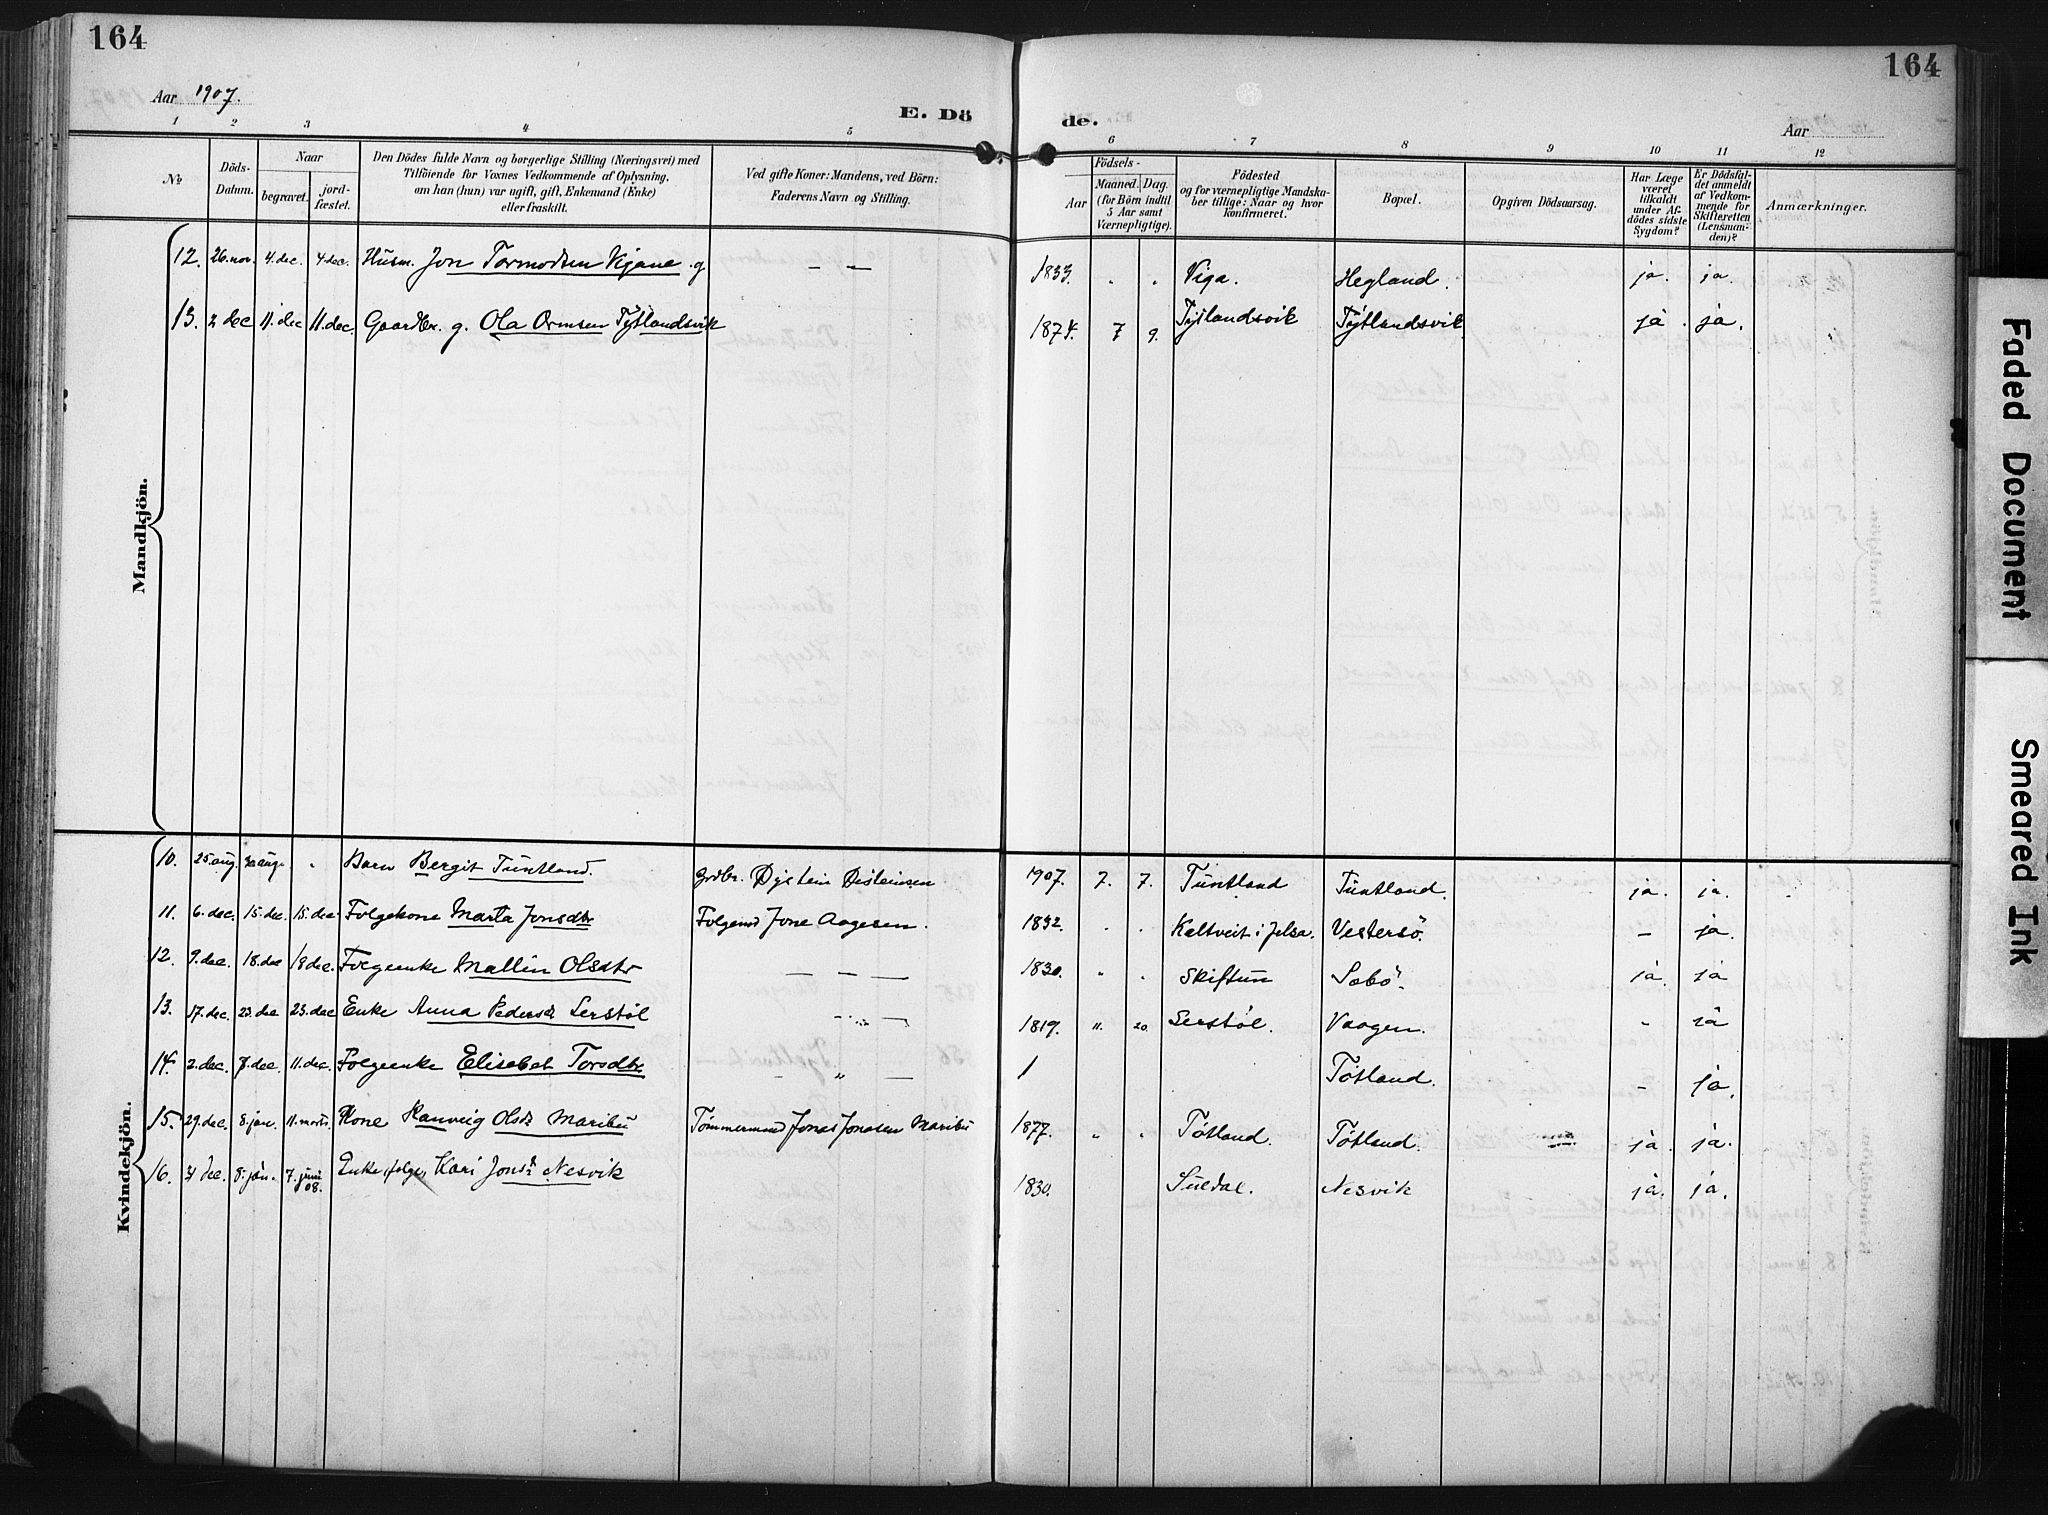 164
164
Aar 1907.
E. Dö
de.
Aar
1 2 3 4 5 6 7 8 9 10 11 12
No
Döds-Datum.
Naar
begravet.
jord-fæstet.
Den Dödes fulde Navn og borgerlige Stilling (Næringsvei) med
Tilföiende for Voxnes Vedkommende af Oplysning,
om han (hun) var ugift, gift, Enkemand (Enke)
eller fraskilt.
Ved gifte Koner: Mandens, ved Börn:
Faderens Navn og Stilling.
Födsels-
Aar
Maaned. Dag.
(for Börn indtil
5 Aar samt
Værnepligtige).
Födested
og for værnepligtige Mandska-
ber tillige: Naar og hvor
konfirmeret.
Bopæl.
Opgiven Dödsaarsag.
Har Læge
været
tilkaldt
under Af-
dödes sidste
Sygdom?
Er Dödsfal-
det anmeldt
af Vedkom-
mende for
Skifteretten
(Lensman-
den)?
Anmærkninger.
Mandkjön.
12. 26. nov. 4. dec. 4 dec. Husm. Jon Tormodsen Kjane g — — 1833. " " Viga. Hegland. ja. ja.
13. 2 dec 11. dec 11. dec. Gaardbr. g. Ola Ormsen Tytlandsvik 1874. 7 9. Tytlandsvik Tytlandsvik ja. ja.
Kvindekjön.
10. 25. aug. 30 aug. " Barn Bergit Tuntland. grdbr. Øystein Øisteinsen 1907. 7. 7. Tuntland Tuntland. ja. ja.
11. 6. dec. 15. dec. 15. dec. Folgekone Marta Jonsdtr Folgemd Jone Aagesen. 1832. " " Kaltveit i Jelsa. Vestersö. – ja.
12. 9. dec. 18. dec 18 dec. Folgeenke Mallin Olsdtr — — — 1830. " " Skiftun Sobö. ja. ja
13. 17. dec. 23. dec 23. dec Enke Anna Pedersd Serstøl - " — 1819. 11. 20. Serstøl. Vaagen. " ja
14. 2. dec. 7. dec. 11. dec. Folgeenke Elisabet Torsdtr - " — 1 Tøtland. – ja.
15. 29. dec. 8. jan. 11. marts. Kone Ranveig Olsd. Maribu Tømmermand Jonas Jonasen Maribu 1877. " " Tøtland. Tøtland. ja. ja.
16. 31 dec. 8. jan. 7. juni 08. Enke (folge) Kari Jonsd. Nesvik 1830. Suldal. Nesvik ja. ja.
Faded Document
Smeared Ink